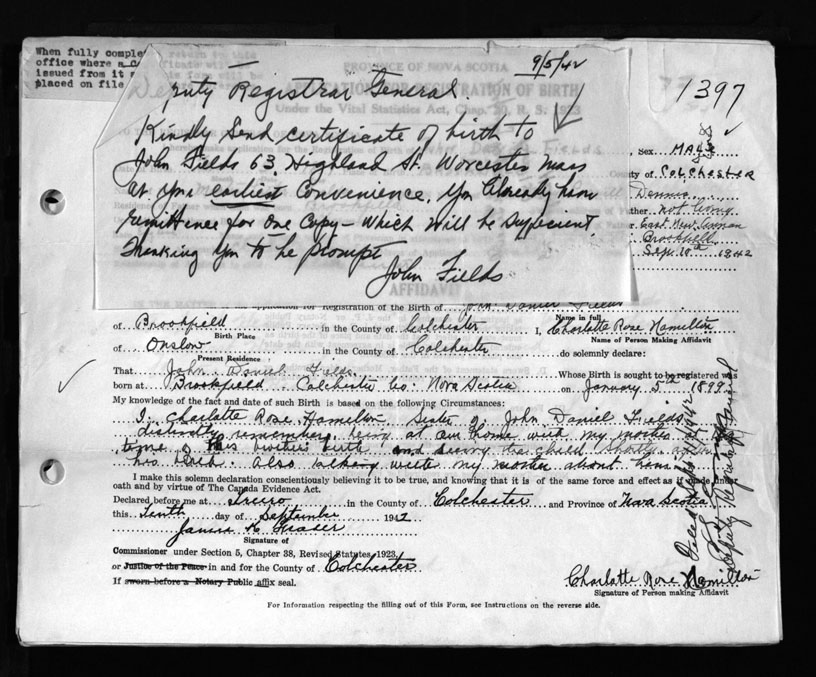 When fully comple
office where a
issued from it
placed on file
PROVINCE OF NOVA SCOTIA
REGISTRATION OF BIRTH
Under the Vital Statistics Act, Chap. 20, R. S. 1923
9/5/42
1397
Deputy Registrar General.
Kindly Send certificate of birth to
John Fields 63, Highland St. Worcester Mass
at your earliest Convenience. You Already have
remittence for one Copy – which will be sufficient.
Thanking You to be prompt
John Fields
Sex MALE
ty of Colchester
Dennis
ther not living
East New Annan
Brookfield
Sept. 10th 1942
AFFIDAVIT
Registration of the Birth of John Daniel Fields
Name in full
of Brookfield in the County of Colchester I, Charlotte Rose Hamilton
Birth Place Name of Person Making Affidavit
of Onslow of Colchester do solemnly declare:
Present Residence
That John Daniel Fields Whose Birth is sought to be registered was
born at Brookfield Colchester Co: Nova Scotia on January 5th 1899
My knowledge of the fact and date of such Birth is based on the following Circumstances:
I, Charlotte Rose Hamilton Sister of John Daniel Fields
distinctly remember being at our home with my mother at
time of this brother's birth and seeing the child shortly after
his birth. Also talking with my mother about him.
I make this solemn declaration conscientiously believing it to be true, and knowing that it is of the same force and effect as if made under
oath and by virtue of The Canada Evidence Act.
Declared before me at Truro in the County of Colchester and Province of Nova Scotia
this Tenth day of September 1942
James K Fraser
Signature of
Commissioner under Section 5, Chapter 38, Revised Statutes, 1923,
or Justice of the Peace in and for the County of Colchester
If sworn before a Notary Public affix seal.
Charlotte Rose Hamilton
Signature of Person making Affidavit
For Information respecting the filling out of this Form, see Instructions on the reverse side.
1942
Deputy Registrar General